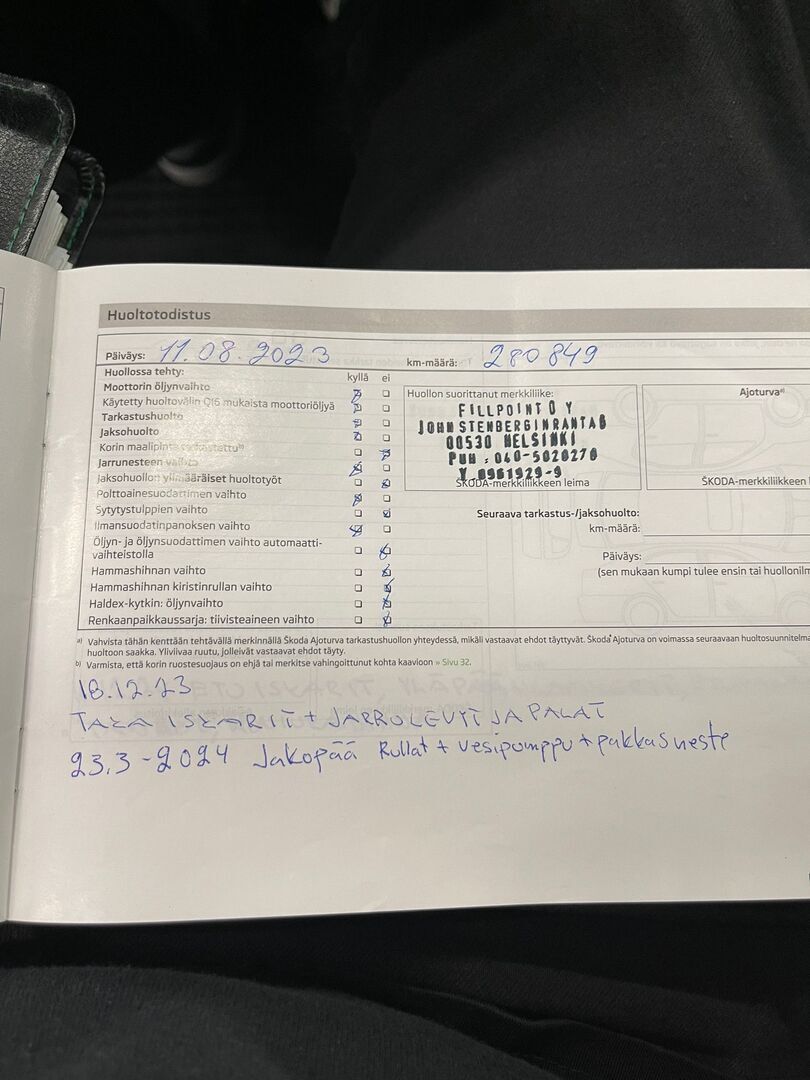 Huoltotodistus
Päiväys: 11.08.2023 km-määrä: 280849
Huollossa tehty: kyllä ei
Moottorin öljynvaihto
Käytetty huoltovälin QI6 mukaista moottoriöljyä
Tarkastushuolto
Jaksohuolto
Korin maalipinta tarkastettu b)
Jarrunesteen vaihto
Jaksohuollon ylimääräiset huoltotyöt
Polttoainesuodattimen vaihto
Sytytystulppien vaihto
Ilmansuodatinpanoksen vaihto
Öljyn- ja öljynsuodattimen vaihto automaatti-
vaihteistolla
Hammashihnan vaihto
Hammashihnan kiristinrullan vaihto
Haldex-kytkin: öljynvaihto
Renkaanpaikkaussarja: tiivisteaineen vaihto
Huollon suorittanut merkkiliike:
FILLPOINT OY
JOHN STENBERGINRANTA6
00530 HELSINKI
PUH. 040-5020270
Y 0961929-9
ŠKODA-merkkiliikkeen leima
Ajoturva a)
ŠKODA-merkkiliikkeen
Seuraava tarkastus-/jaksohuolto:
km-määrä:
Päiväys:
(sen mukaan kumpi tulee ensin tai
a) Vahvista tähän kenttään tehtävällä merkinnällä Škoda Ajoturva tarkastushuollon yhteydessä, mikäli vastaavat ehdot täyttyvät. Škoda Ajoturva on voimassa seuraavaan
huoltoon saakka. Yliviivaa ruutu, jolleivät vastaavat ehdot täyty.
b) Varmista, että korin ruostesuojaus on ehjä tai merkitse vahingoittunut kohta kaavioon » Sivu 32.
18.12.23
TAKA ISKARIT + JARROLEVYT JA PALAT
23.3-2024 Jakopää Rullat + vesipumppu + pakkasneste